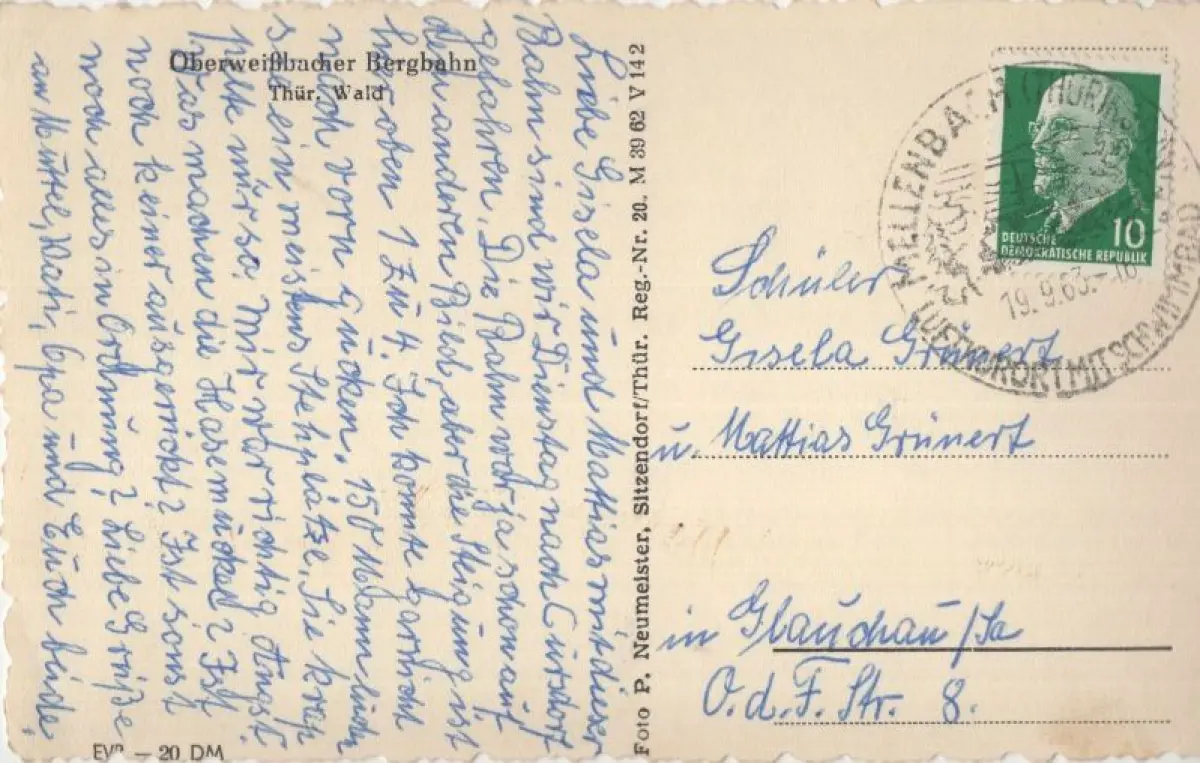 Oberweißbacher Bergbahn
Thür. Wald
Liebe Gisela und Mattias mit dieser
Bahn sind wir Dienstag nach Cursdorf
gefahren. Die Bahn war ja schon auf
den anderen Bild, aber die Steigung ist
hier oben 1 zu 4. Ich konnte gar nicht
nach vorn gucken. 150 Mann
sein meistens Stehplätze. Sie
pelte nur so. Mir war richtig Angst.
Was machen die Hasen Ist
noch keiner ausgerückt? Ist sonst
noch alles in Ordnung? Liebe Grüße
an Muttel, Vati, Opa und Euch beide.
EVP – 20 DM
Foto P. Neumeister, Sitzendorf/Thür. Reg.-Nr. 20. M 39 62 V 14 2
DEUTSCHE
DEMOKRATISCHE REPUBLIK
10
MELLENBACH (THÜRING
19.9.63.
LUFTKURORT MIT SCHWIMMBAD
Schüler
Gisela Grünert
u. Mattias Grünert
in Glauchau/Sa
O.d.F. Str. 8.